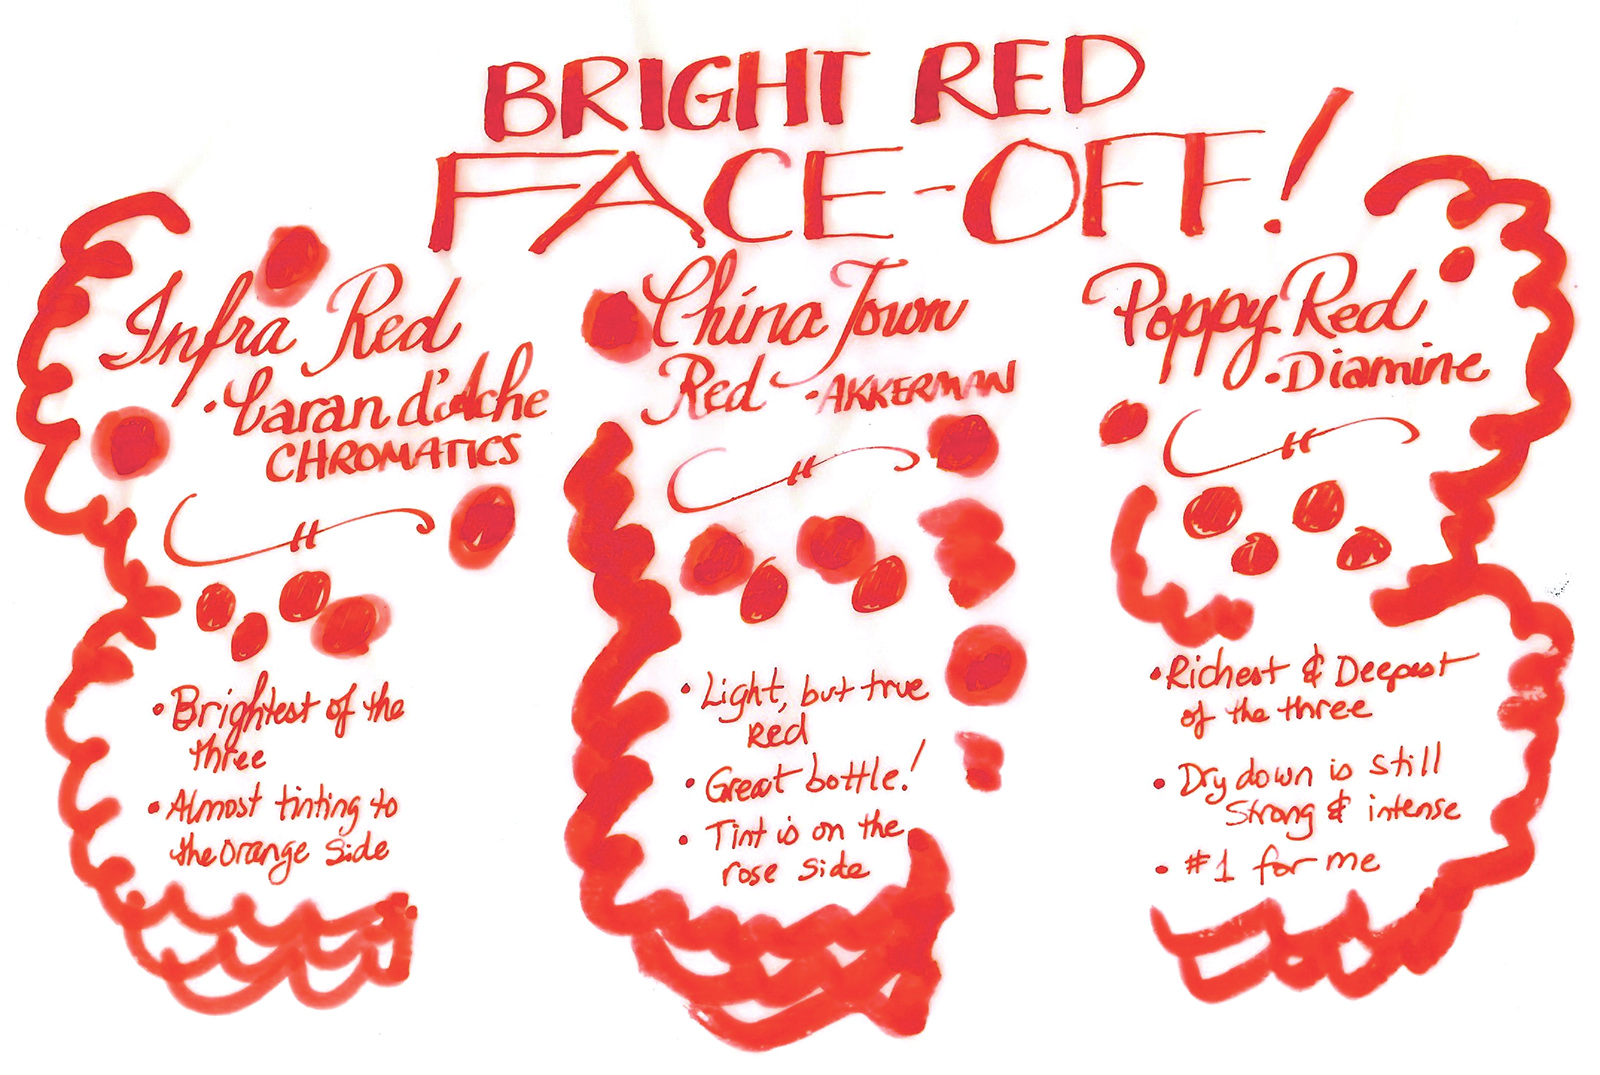 BRIGHT RED
FACE-OFF!
Infra Red
·Caran d'Ache
CHROMATICS
•Brightest of the
three
•Almost tinting to
the orange side
China Town
Red ·AKKERMAN
•Light, but true
red
•Great bottle!
•Tint is on the
rose side
Poppy Red
·Diamine
•Richest & Deepest
of the three
•Dry down is still
strong & intense
•#1 for me